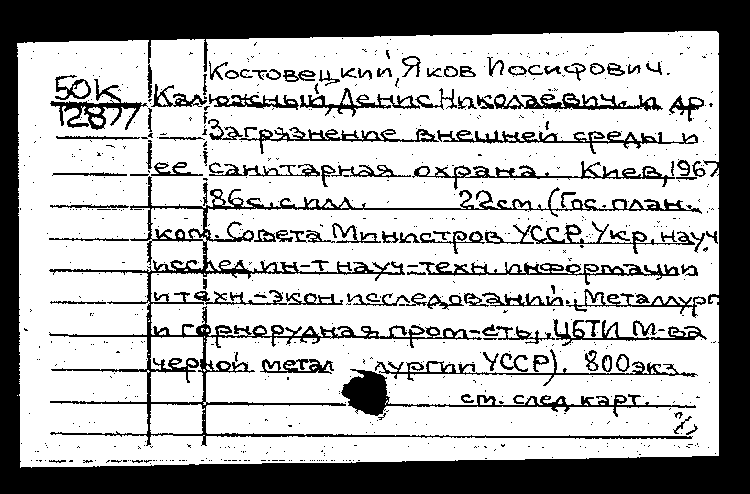 Костовецкий, Яков Иосифович.
50К
12877
Калюжный, Денис Николаевич. и др.
Загрязнение внешней среды и
ее санитарная охрана. Киев, 1967
86с. с илл. 22см. (Гос. план.
ком. Совета Министров УССР. Укр. науч
исслед. ин-т науч-техн. информации
и техн.-экон. исследований. Металлург
и горнорудная пром-сть, ЦБТИ М-ва
черной металлургии УССР). 800экз.
см. след. карт.